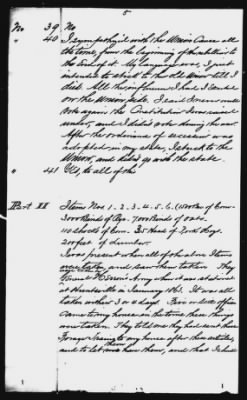 5
No 39 No
" 40 I sympathized with the Union Cause all
the time, from the beginning of the rebellion to
the end of it. My language was, I just
intended to stick to the old Union till I
died. All the influence I had I exerted
on the Union side. I said I never would
vote against the Constitution I was raised
under, and I didn't vote during the war.
After the ordinance of secession was
adopted in my state, I stuck to the
Union, and didn't go with the state.
" 41 No, to all of the
Part II Items Nos 1. 2. 3. 4. 5. 6. (150 bbls of Corn
3000 Binds of 7000 Binds of oats.
110 Shocks of Corn. 35 Head of Hogs.
200 feet of lumber.
I was present when all of the above Items
were taken and saw them taken. They
were Army when it was stationed
at Huntsville in January 1863. It was all
taken within 3 or 4 days. Two or three officers
came to my house in the time these things
were taken. They told me they had sent their
Forage Trains to my house after these articles,
and to let them have them, and that I should